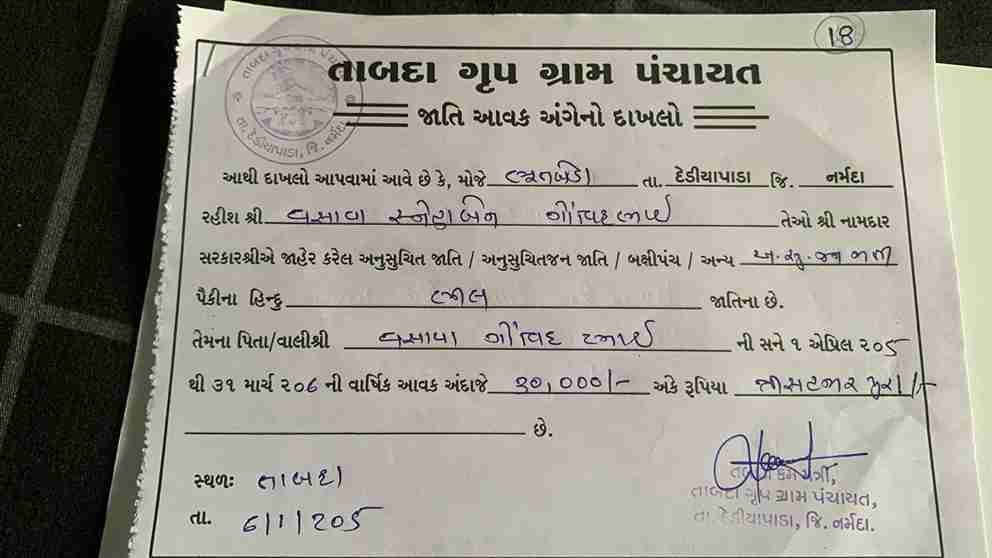 18
તાબદા ગૃપ ગ્રામ પંચાયત
જાતિ આવક અંગેનો દાખલો
આથી દાખલો આપવામાં આવે છે કે, મોજે તા. દેડીયાપાડા જિ. નર્મદા
રહીશ શ્રી વસાવા સ્નેહાબેન ગોવિંદભાઈ તેઓ શ્રી નામદાર
સરકારશ્રીએ જાહેર કરેલ અનુસુચિત જાતિ / અનુસુચિતજન જાતિ / બક્ષીપંચ / અન્ય
પૈકીના હિન્દુ ભીલ જાતિના છે.
તેમના પિતા/વાલીશ્રી વસાવા ગોવિંદ ભાઈ ની સને ૧ એપ્રિલ ૨૦5
થી ૩૧ માર્ચ ૨૦6 ની વાર્ષિક આવક અંદાજે 30,000/- અંકે રૂપિયા પુરા/-
છે.
સ્થળઃ તાબદા
તા. 6/1/205
તાબદા ગૃપ ગ્રામ પંચાયત,
તા. દેડીયાપાડા, જિ. નર્મદા.